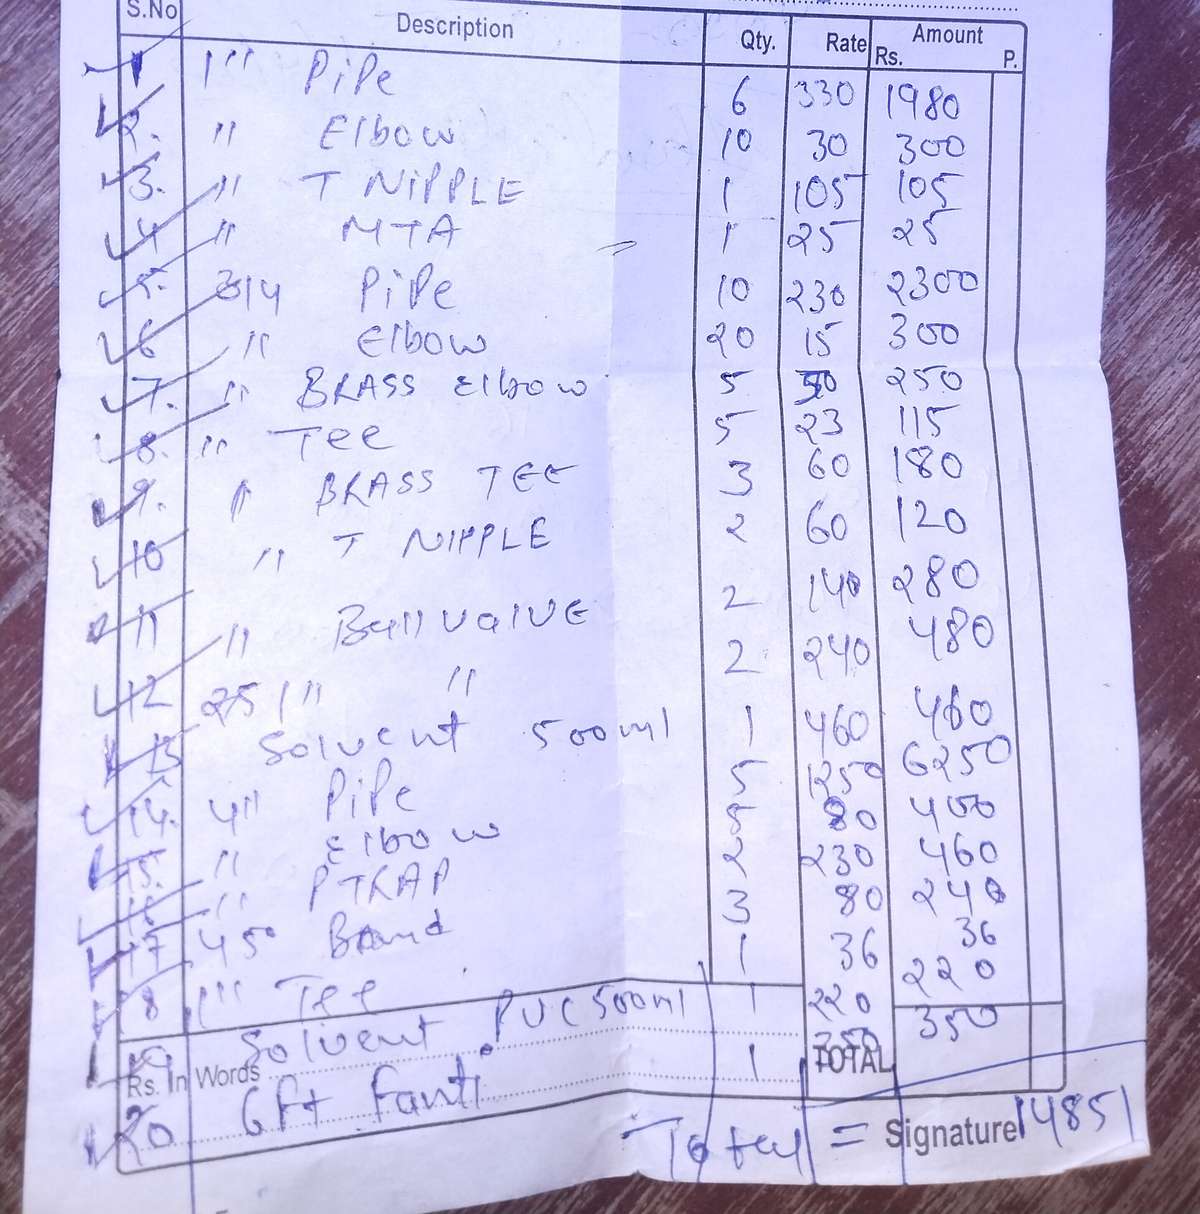 S.No Description Qty. Rate Amount
Rs. P.
1 1''' PiPe 6 330 1980
2. '' Elbow 10 30 300
3. '' T NIPPLE 1 105 105
4 '' MTA 1 25 25
5. 3/4 PiPe 10 230 2300
6 '' Elbow 20 15 300
7. '' BRASS Elbow 5 50 250
8. '' Tee 5 23 115
9. '' BRASS TEE 3 60 180
10 '' T NIPPLE 2 60 120
11 '' Ball valVE 2 140 280
12 25 1''' '' 2 240 480
13 Solvent 500ml 1 460 460
14. 4'' PiPe 5 1250 6250
15. '' Elbow 5 80 400
16 '' P TRAP 2 230 460
17 45° Band 3 80 240
18 1''' Tee 1 36 36
19 Solvent PVC 500ml 1 220 220
Rs. In Words TOTAL
20 6 Ft Fanti 1 350 350
Total = 14851
Signature